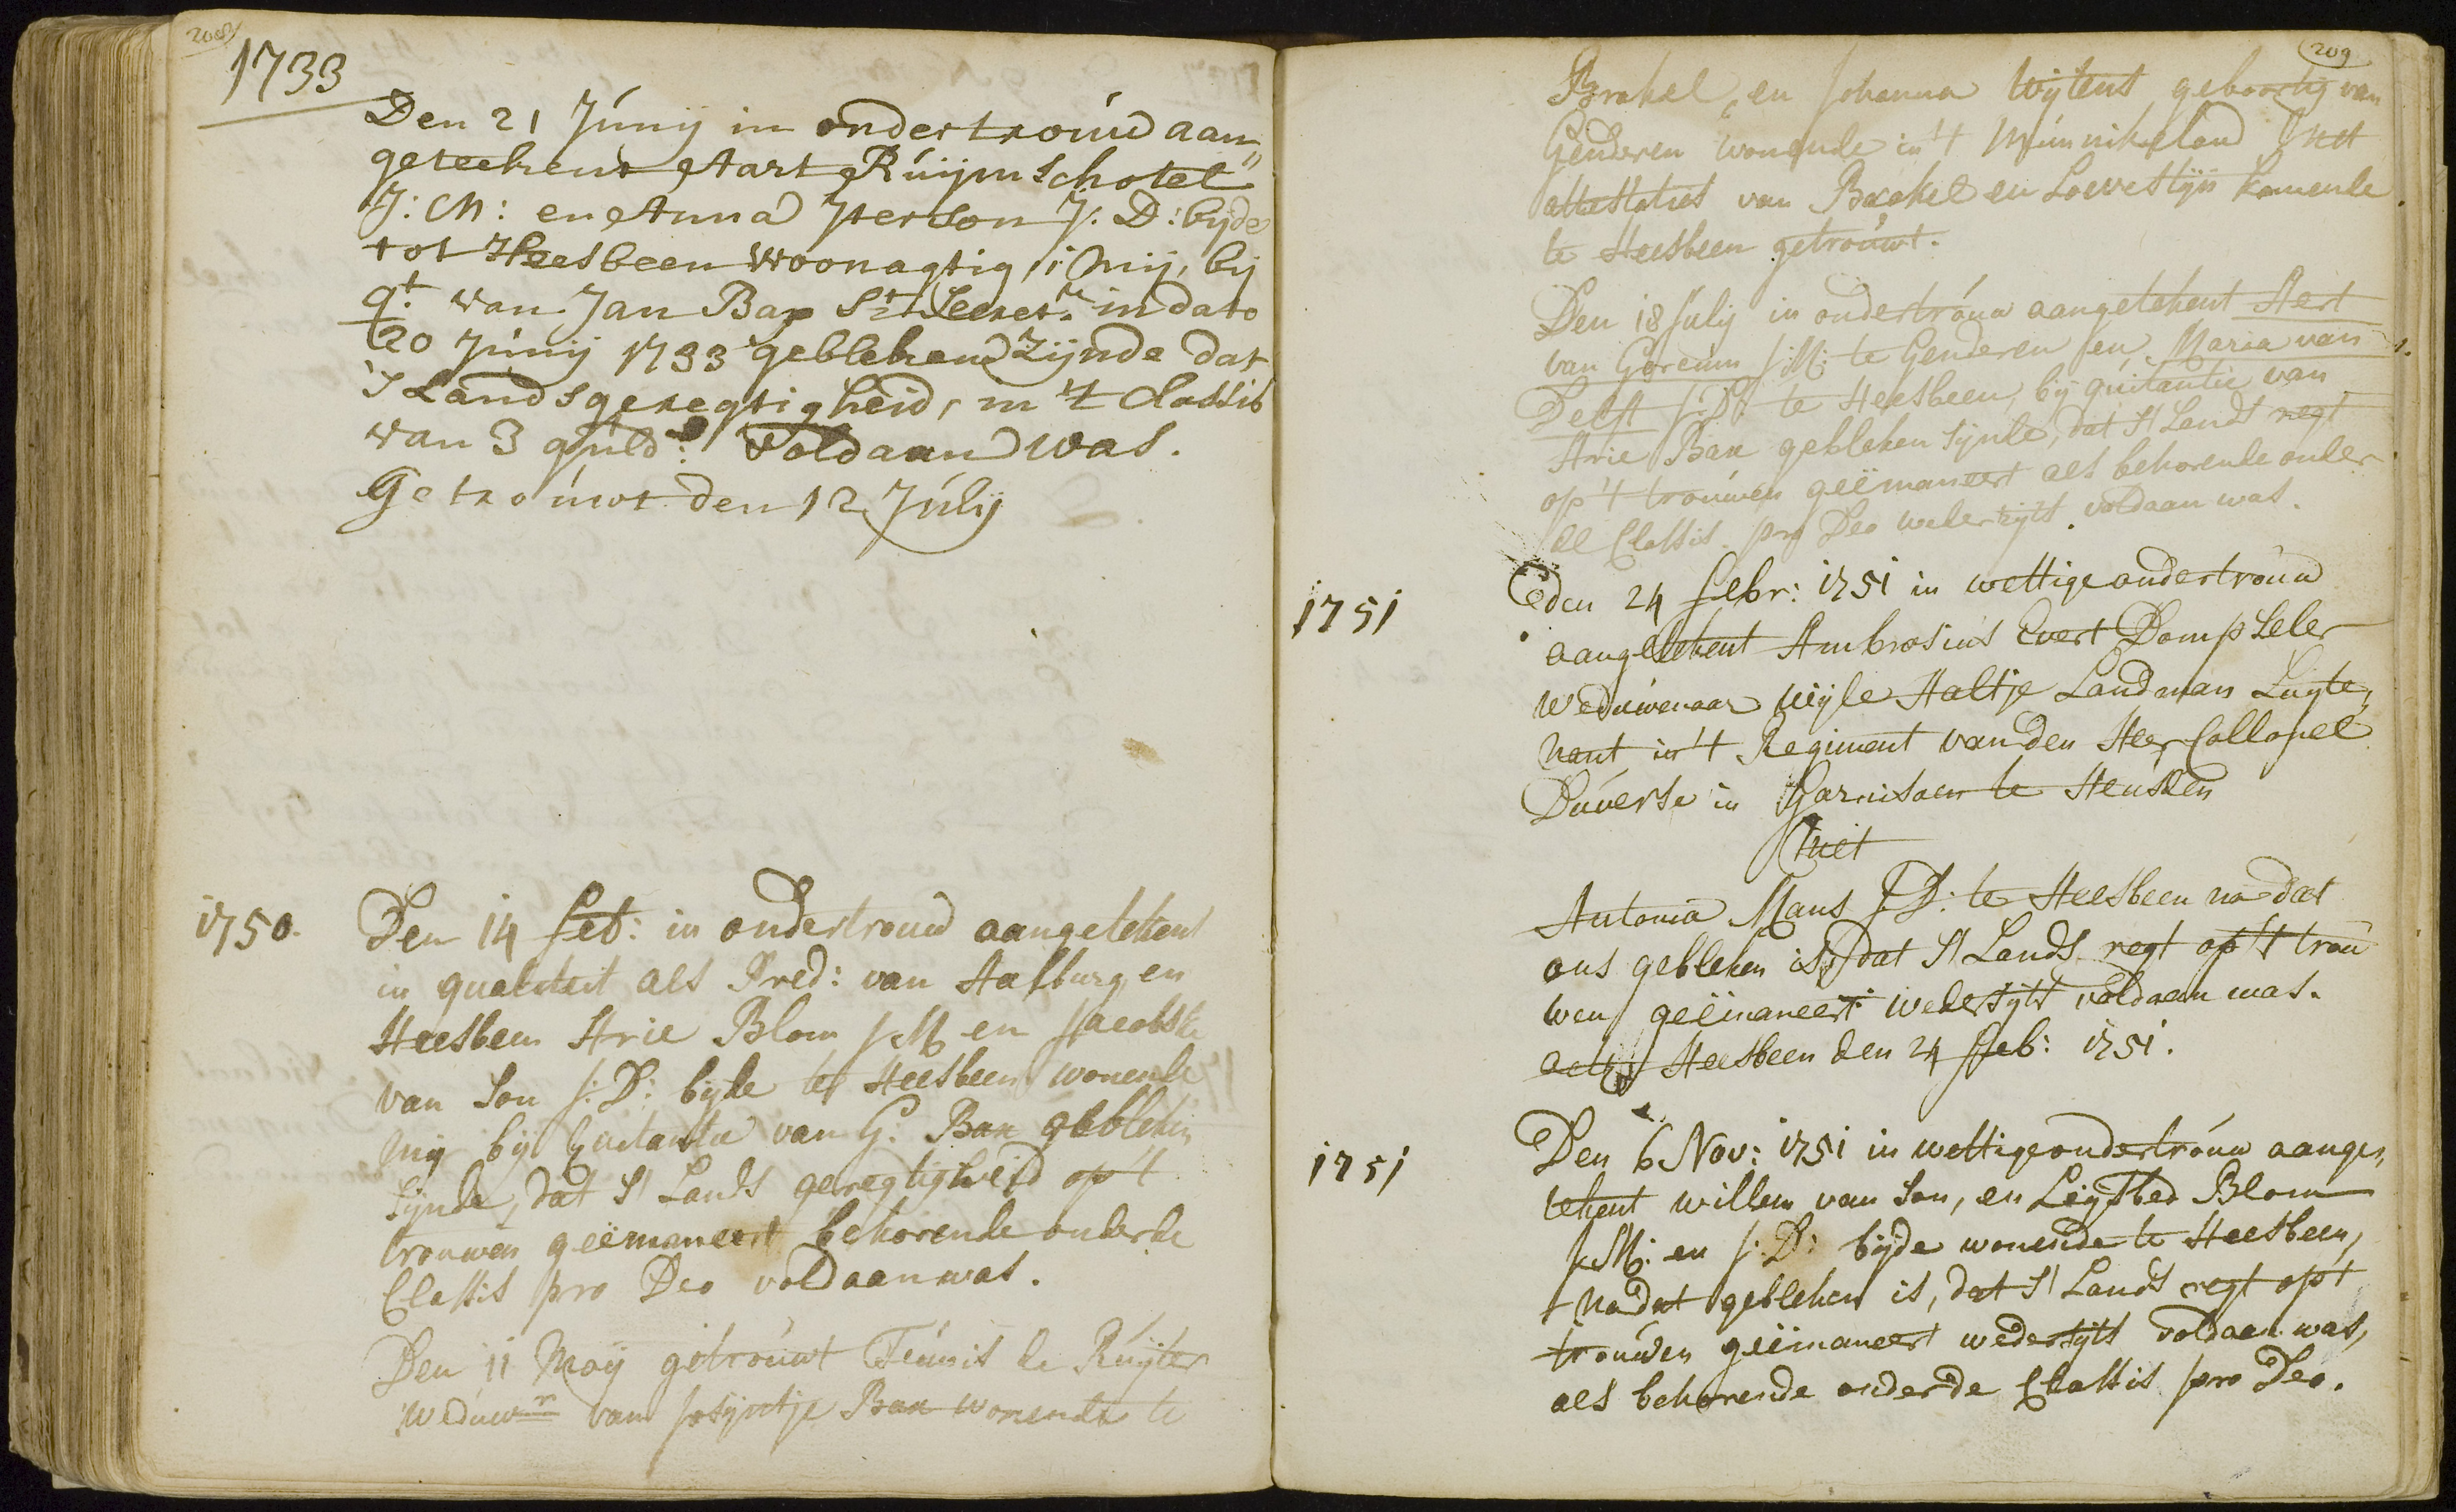 208
1733
Den 21 Júnij in ondertrouw aan
geteekent Aart Rúijmschotel
J: M: en Anna Iterson J: D: byde
tot Heesbeen woonagtig, mij, bij
qt. van Jan Bax St. Secret. in dato
20 Júnij 1733 gebleken zijnde dat
's Landsgeregtigheid, in 't Classis
van 3 guld: voldaan was.
Getroúwt den 12 Júlij
1750. Den 14 feb: in ondertrouw aangetekent
in qualiteit als Pred: van Aalburg en
Heesbeen Arie Blom J M en Jacobske
van Son J: D: byde te Heesbeen wonende
mij bij Quitantie van G: Bax gebleken
sijnde, dat S' Lands geregtigheid op 't
trouwen geëmaneert behorende onder de
Classis pro Deo voldaan was.
Den 11 Maij getroúwt Teúnis de Rúijter
weduwr van Josijntje Bax wonende te
209
Brakel, en Johanna Wijtens geboortig van
Genderen wonende in 't Múnnikeland met
attestaties van Brakel en Loevestijn komende
te Heesbeen getroúwt.
Den 18 Julij in ondertróuw aangetekent Aert
van Gorcum J: M: te Genderen en Maria van
Delft J: D: te Heesbeen, bij quitantie van
Arie Bax gebleken sijnde, dat S' Lands regt
op 't troúwen geëmaneert als behorende onder
de Classis pro Deo wedersijts voldaan was.
1751 den 24 febr: 1751 in wettige ondertroúw
aangetekent Ambrosius Evert Dompseler
Weduwenaar wijle Aaltje Landman Luyte,
nant in 't Regiment van den Heer Collonel
Dúverse in Garnisoen te Heusden
met
Antonia Maus J: D: te Heesbeen nadat
ons gebleken is, dat S' Lands regt op 't trou
wen geëmaneert wedersijts voldaan was.
actum Heesbeen den 24 feb: 1751.
1751 Den 6 Nov: 1751 in wettige ondertróuw aange,
tekent willem van Son, en Leijsbed Blom
J: M: en J: D: bijde wonende te Heesbeen,
nadat gebleken is, dat S' Lands regt op 't
troúwen geëmaneert wedersijts voldaan was,
als behorende onder de Classis pro Deo.